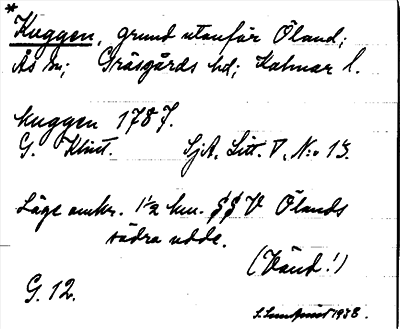 *
Kuggen, grund utanför Öland;
Ås sn; Gräsgårds hd; Kalmar l.
kuggen 1787.
G. Klint. SjA, Litt. V, N:o 13.
Läge omkr. 1½ km. SSV Ölands
södra udde.
(Vänd!)
G. 12.
1938.